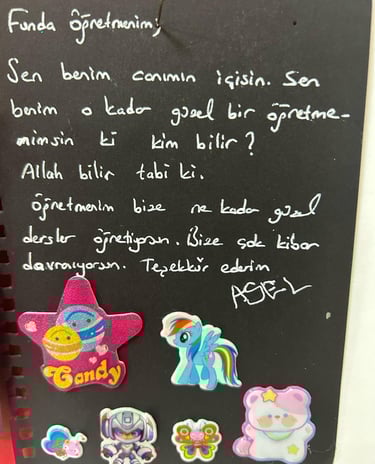 Funda öğretmenim;
Sen benim canımın içisin. Sen
benim o kadar güzel bir öğretme-
nimsin ki kim bilir?
Allah bilir tabi ki.
öğretmenim bize ne kadar güzel
dersler öğretiyorsn. Bize çok kibar
davranıyorsun. Teşekkür ederim
ASEL
Candy